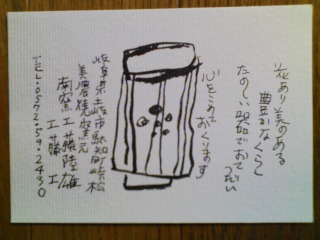 花あり美のある
豊かなくらし
たのしい器でおて
つだい
心をこめて
おくります
岐阜県土岐市駄知町
美濃焼窯元
南窯 工藤陸雄
工藤 工
TEL.0572.59.2430